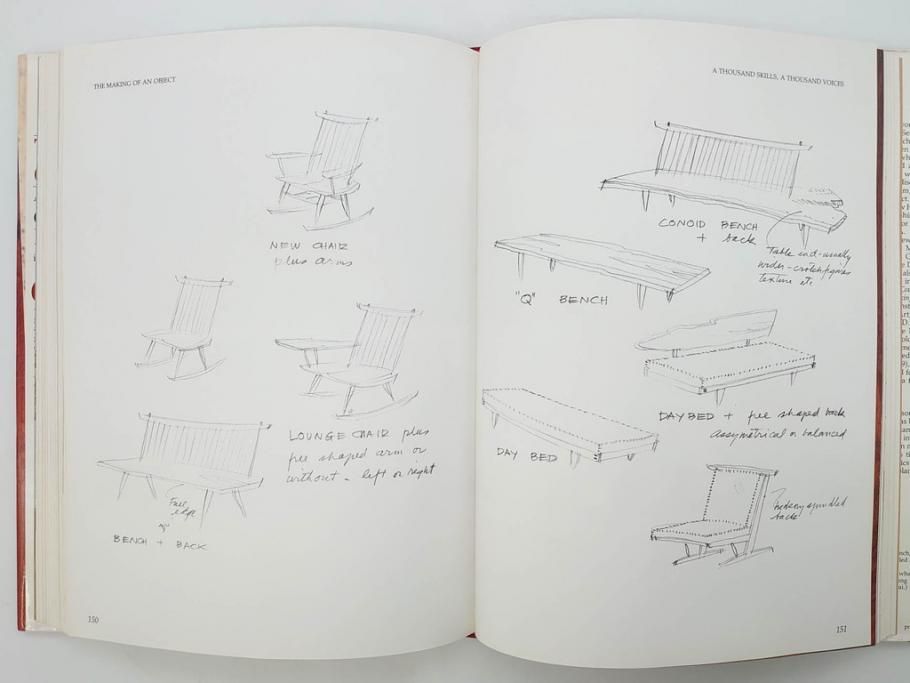 THE MAKING OF AN OBJECT
NEW CHAIR
plus arms
LOUNGE CHAIR plus
free shaped arm or
without - left or right
Free
edge
BENCH + BACK
150
A THOUSAND SKILLS, A THOUSAND VOICES
CONOID BENCH
+ back
Table end - usually
wider -
texture etc
"Q" BENCH
DAY BED + free shaped back
assymetrical or balanced
DAY BED
hickory spindled
back
151